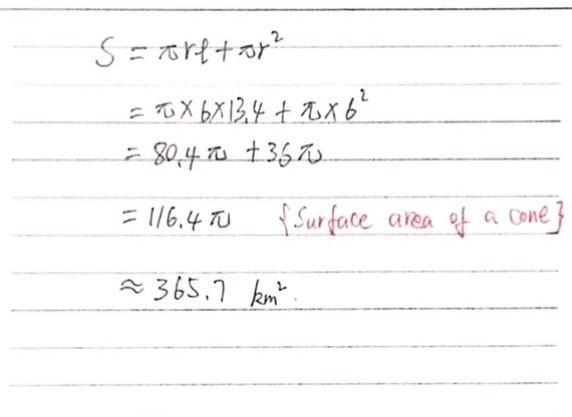 S = πrl + πr²
= π×6×13.4 + π×6²
= 80.4π + 36π
= 116.4π {Surface area of a cone}
≈ 365.7 km².